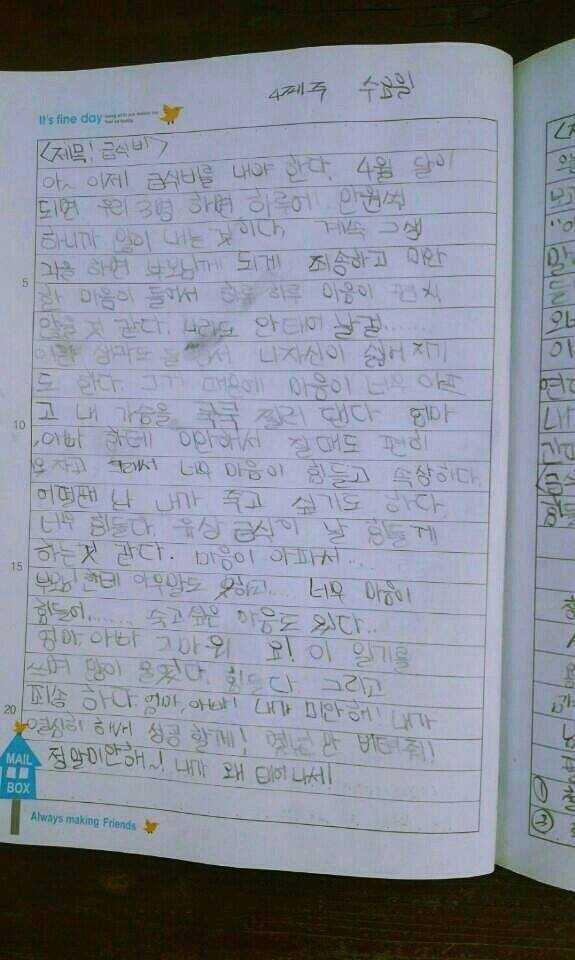 4째주 수요일
It's fine day
<제목! 급식비>
아~ 이제 급식비를 내야 한다. 4월 달이
되면 우리 3명 하면 하루에 만원씩
하니까 많이 내는 것이다. 계속 그 생
각을 하면 부모님께 되게 죄송하고 미안
한 마음이 들어서 하루 하루 마음이 편치
않을 것 같다. 나라도 안 태어 날걸......
이란 생각도 들 서 나 자신이 싫어 지기
도 한다. 그기 때문에 마음이 너무 아프
고 내 가슴을 콕콕 찔러 댄다. 엄마
, 아빠 한테 미안해서 잘 때도 편히
못 자고 그래서 너무 마음이 힘들고 속상하다.
어떨땐 난 내가 죽고 싶기도 하다.
너무 힘들다. 유상급식이 날 힘들게
하는 것 같다. 마음이 아파서...
부모님 한테 아무말도 못하고... 너무 마음이
힘들어...... 죽고 싶은 마음도 있다..
엄마, 아빠 고마워 요! 이 일기를
쓰며 많이 울었다. 힘들다. 그리고
죄송 하다. 엄마, 아빠! 내가 미안해! 내가
열심히 해서 성공 할게! 몇년만 버텨줘!
정말미안해~! 내가 왜 태어나서!
5
10
15
20
MAIL
BOX
Always making Friends